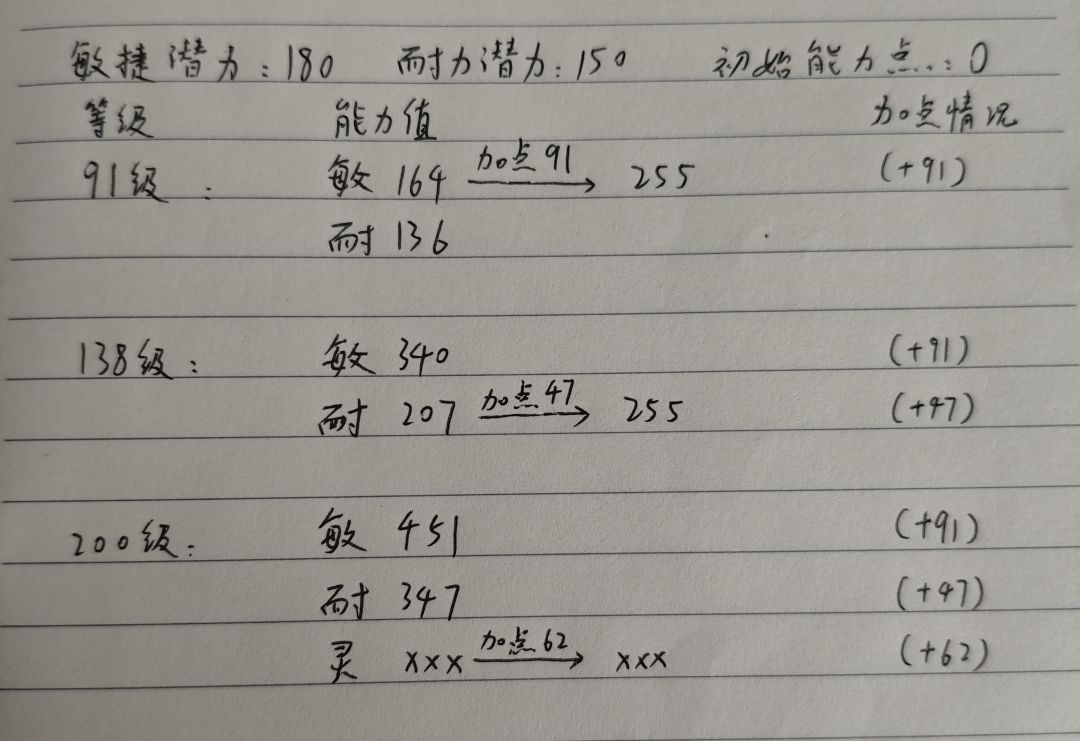 敏捷潜力:180 耐力潜力:150 初始能力点..:0
等级 能力值 加点情况
91级: 敏 164 加点91→ 255 (+91)
耐 136
138级: 敏 340 (+91)
耐 207 加点47→ 255 (+47)
200级: 敏 451 (+91)
耐 347 (+47)
灵 xxx 加点62→ xxx (+62)